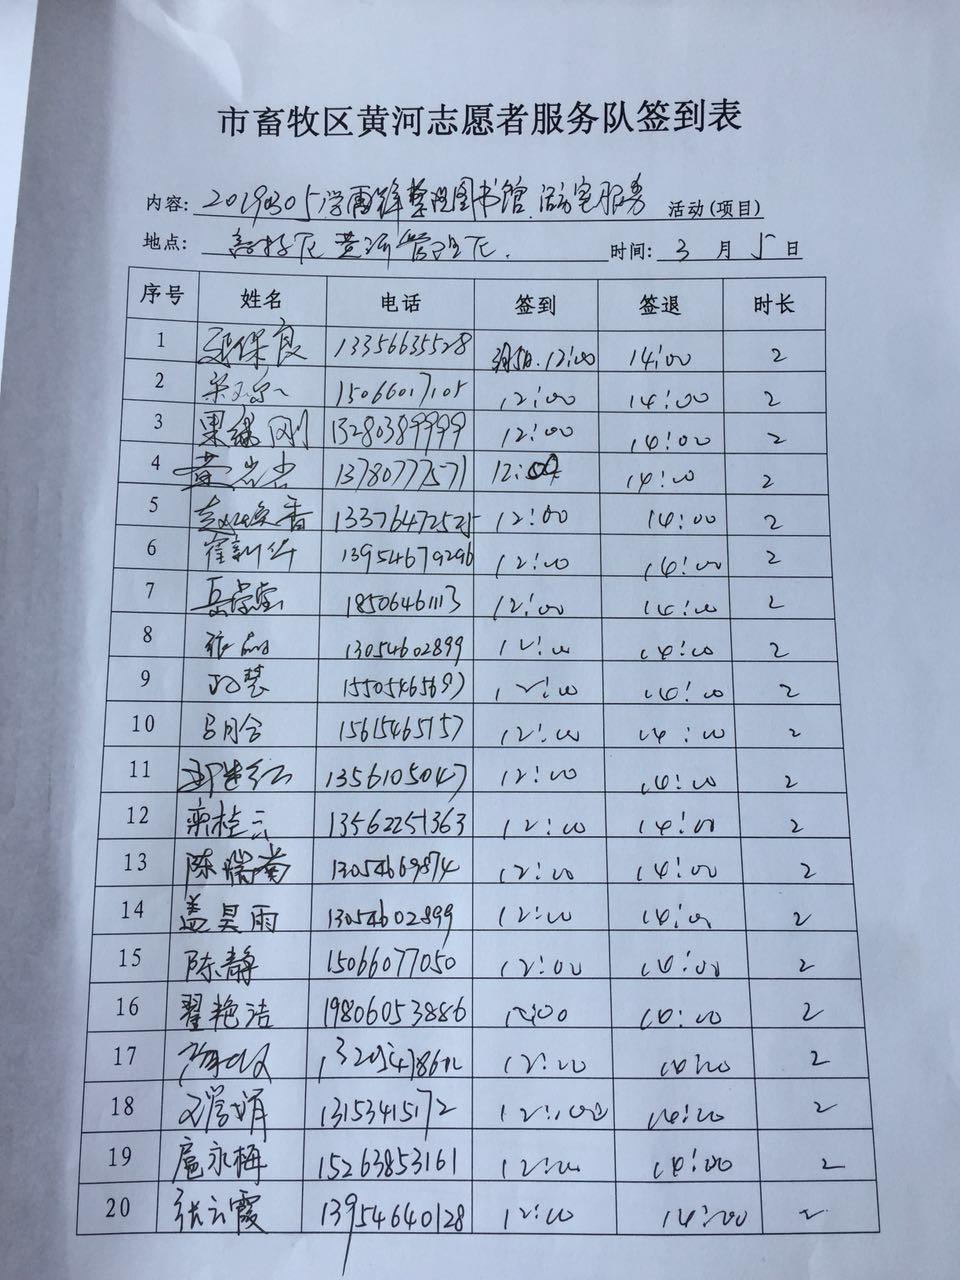 市畜牧区黄河志愿者服务队签到表
内容: 20190305学雷锋整理图书馆 活动室服务 活动(项目)
地点: 黄河管理区. 时间: 3 月 5 日
序号 姓名 电话 签到 签退 时长
1 保良 13356635528 3月5日.12:00 14:00 2
2 15066017105 12:00 14:00 2
3 刚 13280389999 12:00 14:00 2
4 13780777571 12:00 14:00 2
5 香 13376472525 12:00 14:00 2
6 崔新华 13954679296 12:00 14:00 2
7 1850646113 12:00 14:00 2
8 张 13054602899 12:00 14:00 2
9 慧 12:00 14:00 2
10 15615465157 12:00 14:00 2
11 1356105047 12:00 14:00 2
12 栾桂云 13562251363 12:00 14:00 2
13 陈瑞 13054669874 12:00 14:00 2
14 盖昊雨 13054602899 12:00 14:00 2
15 陈静 15066077050 12:00 14:00 2
16 翟艳洁 19806053886 12:00 14:00 2
17 12:00 14:00 2
18 娟 13153415172 12:00 14:00 2
19 扈永梅 15263853161 12:00 14:00 2
20 张云霞 13954640128 12:00 14:00 2